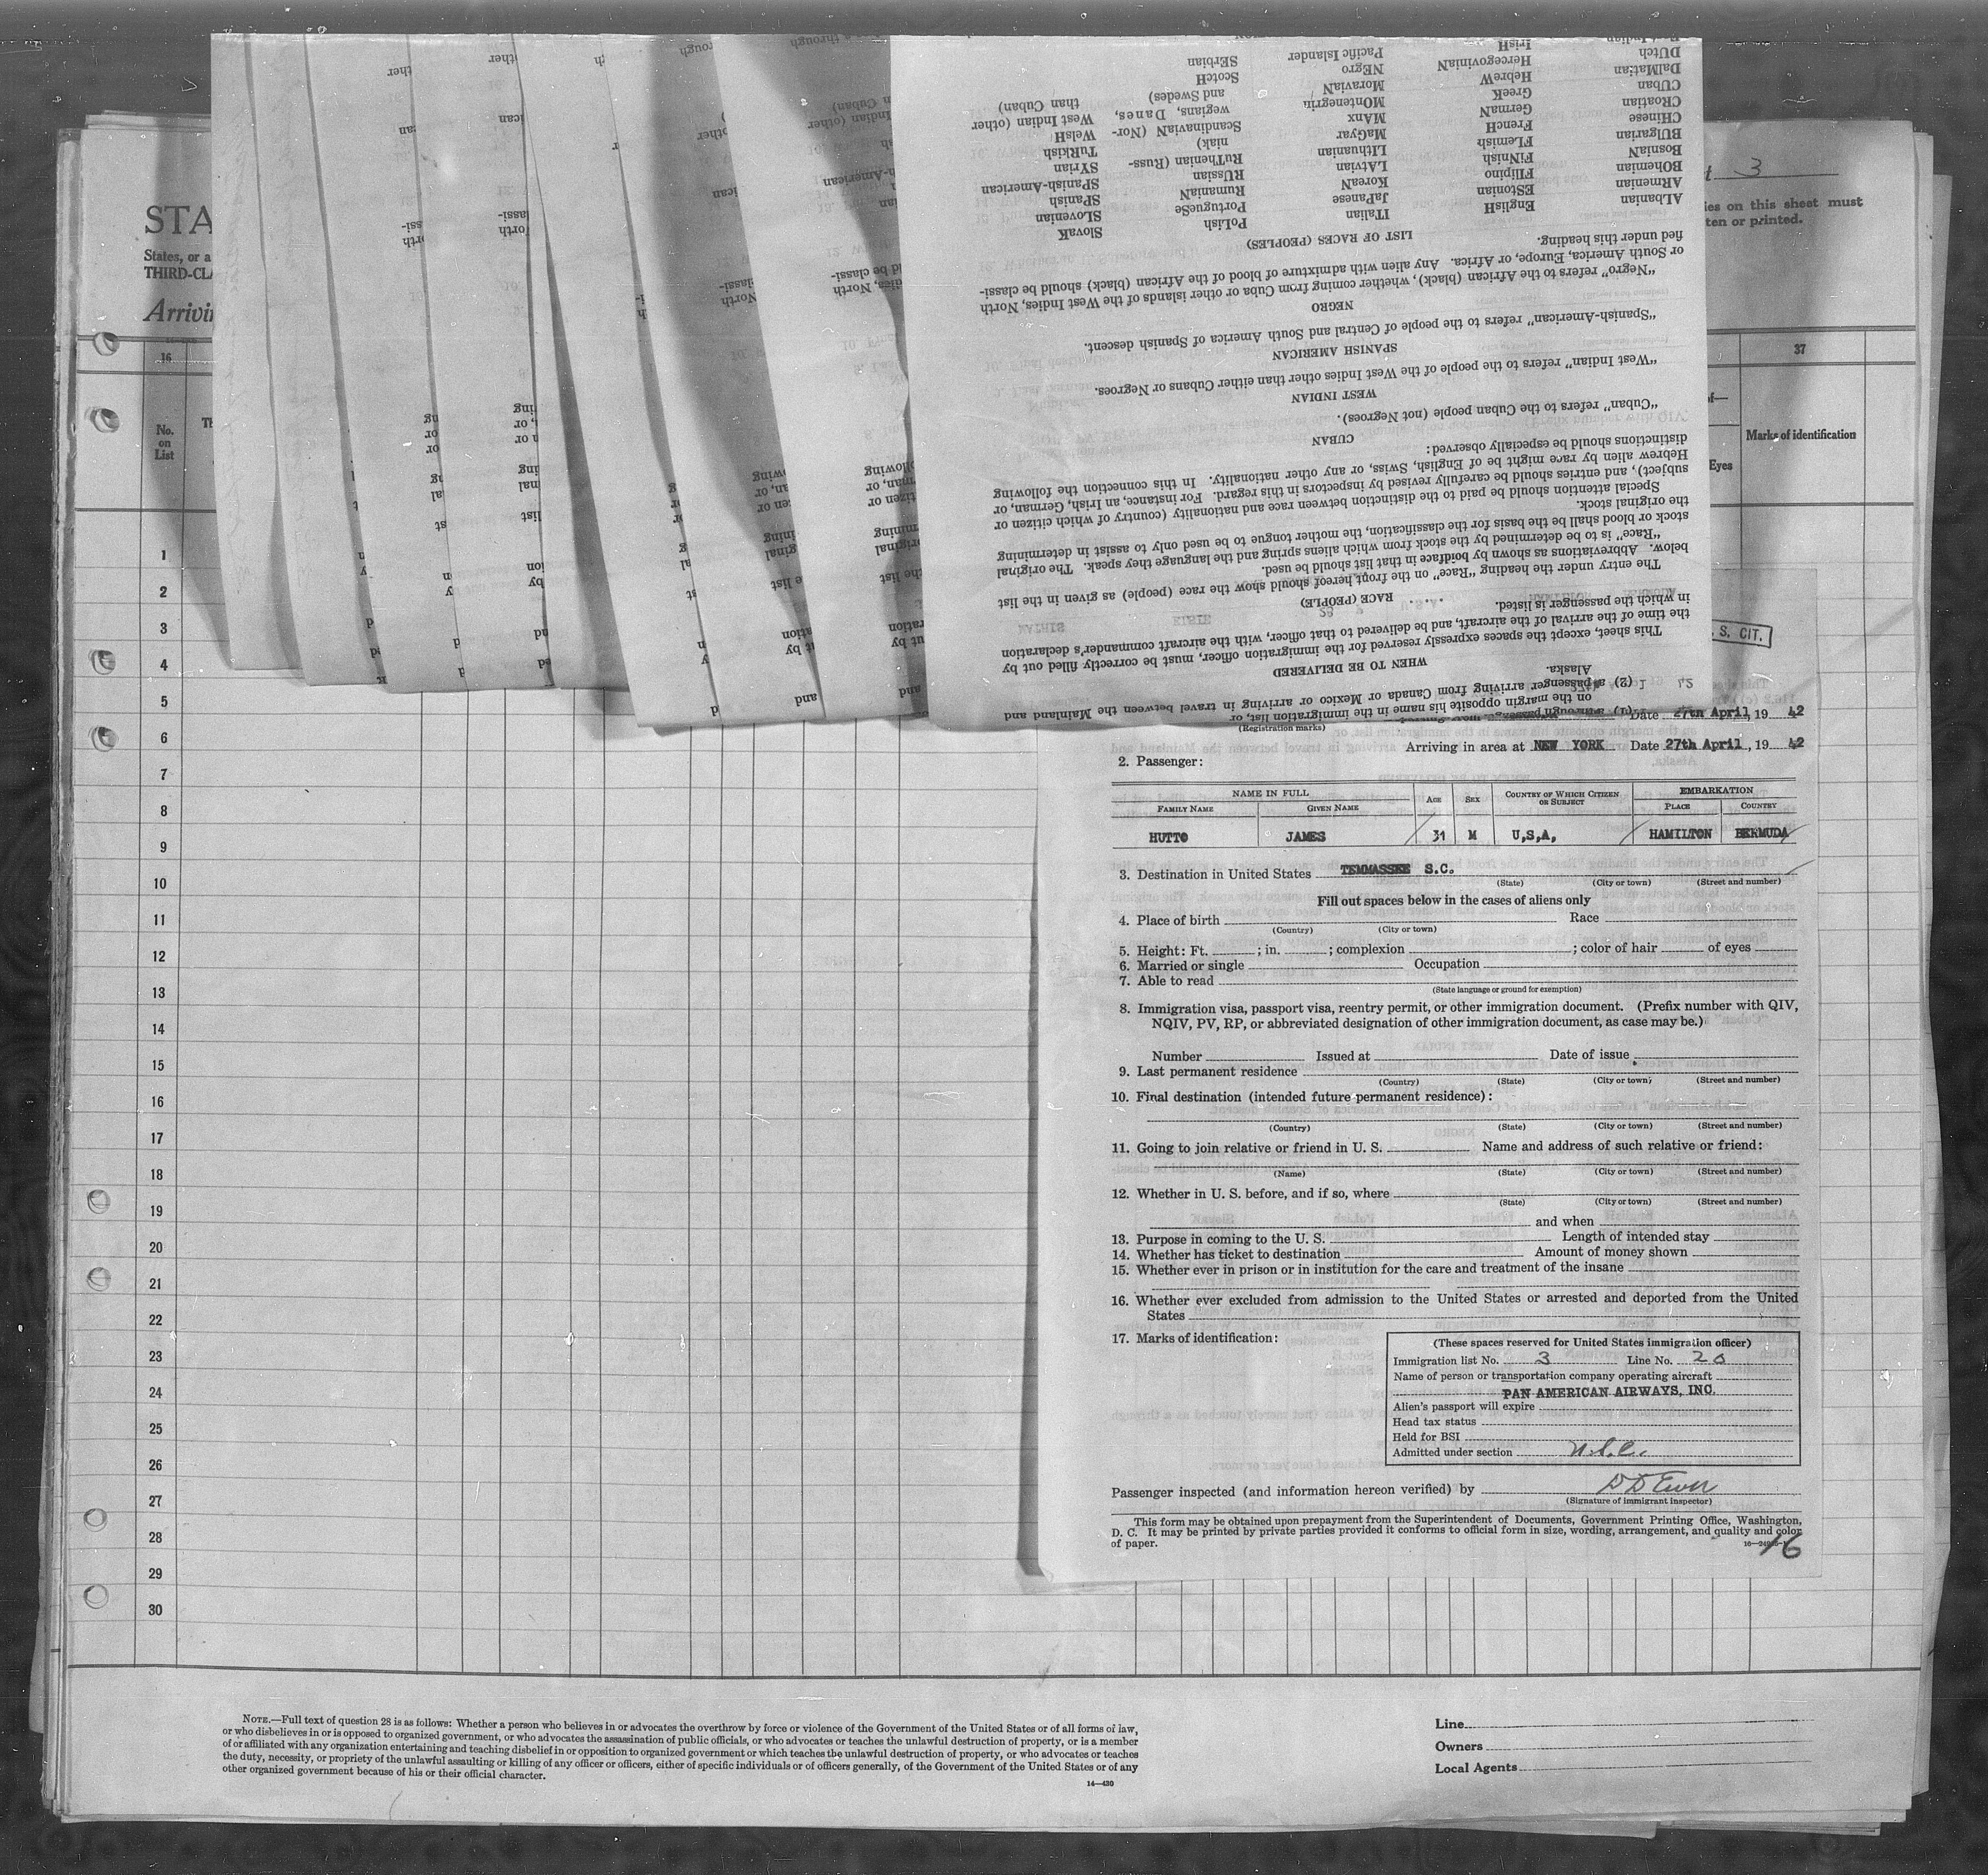 STA
States, or a
THIRD-CLA
3
ies on this sheet must
ten or printed.
16
37
No.
on
List
Marks of identification
Eyes
1
2
3
4
5
6
7
8
9
10
11
12
13
14
15
16
17
18
19
20
21
22
23
24
25
26
27
28
29
30
on the margin opposite his name in the immigration list, or
(2) a passenger arriving from Canada or Mexico or arriving in travel between the Mainland and
Alaska.
WHEN TO BE DELIVERED
This sheet, except the spaces expressly reserved for the immigration officer, must be correctly filled out by
the time of the arrival of the aircraft, and be delivered to that officer, with the aircraft commander's declaration
in which the passenger is listed.
RACE (PEOPLE)
The entry under the heading "Race" on the front hereof should show the race (people) as given in the list
below. Abbreviations as shown by boldface in that list should be used.
"Race" is to be determined by the stock from which aliens spring and the language they speak. The original
stock or blood shall be the basis for the classification, the mother tongue to be used only to assist in determining
the original stock.
Special attention should be paid to the distinction between race and nationality (country of which citizen or
subject), and entries should be carefully revised by inspectors in this regard. For instance, an Irish, German, or
Hebrew alien by race might be of English, Swiss, or any other nationality. In this connection the following
distinctions should be especially observed:
CUBAN
"Cuban" refers to the Cuban people (not Negroes).
WEST INDIAN
"West Indian" refers to the people of the West Indies other than either Cubans or Negroes.
SPANISH AMERICAN
"Spanish-American" refers to the people of Central and South America of Spanish descent.
NEGRO
"Negro" refers to the African (black), whether coming from Cuba or other islands of the West Indies, North
or South America, Europe, or Africa. Any alien with admixture of blood of the African (black) should be classi-
fied under this heading.
LIST OF RACES (PEOPLES)
ALbanian EnglisH ITalian PoLish SlovaK
ARmenian EStonian JaPanese PortugueSe SLovenian
BOhemian FIlipino KoreaN RumaniaN SPanish
BosniaN FiNnish LAtvian RUssian SPanish-American
BUlgarian FLemish LIthuanian RuThenian (Russ- SYrian
CHinese FrencH MaGyar niak) TuRkish
CROatian GermaN MAnx ScandinaviaN (Nor- WelsH
CUban GreeK MOntenegrin wegians, Danes, West Indian (other
DalMatian HebreW MoraviaN and Swedes) than Cuban)
DUtch HercegoviniaN NEgro ScotcH
IrisH Pacific Islander SErbian
S. CIT.
(Registration marks)
Date 27th April, 19 42
Arriving in area at NEW YORK Date 27th April, 19 42
2. Passenger:
NAME IN FULL
AGE
SEX
COUNTRY OF WHICH CITIZEN OR SUBJECT
EMBARKATION
FAMILY NAME GIVEN NAME PLACE COUNTRY
HUTTO JAMES 31 M U.S.A. HAMILTON BERMUDA
3. Destination in United States TEMMASSEE S.C.
(State) (City or town) (Street and number)
Fill out spaces below in the cases of aliens only
4. Place of birth Race
(Country) (City or town)
5. Height: Ft. ; in. ; complexion ; color of hair of eyes
6. Married or single Occupation
7. Able to read
(State language or ground for exemption)
8. Immigration visa, passport visa, reentry permit, or other immigration document. (Prefix number with QIV,
NQIV, PV, RP, or abbreviated designation of other immigration document, as case may be.)
Number Issued at Date of issue
9. Last permanent residence
(Country) (State) (City or town) (Street and number)
10. Final destination (intended future permanent residence):
(Country) (State) (City or town) (Street and number)
11. Going to join relative or friend in U. S. Name and address of such relative or friend:
(Name) (State) (City or town) (Street and number)
12. Whether in U. S. before, and if so, where
(State) (City or town) (Street and number)
and when
13. Purpose in coming to the U. S. Length of intended stay
14. Whether has ticket to destination Amount of money shown
15. Whether ever in prison or in institution for the care and treatment of the insane
16. Whether ever excluded from admission to the United States or arrested and deported from the United
States
17. Marks of identification:
(These spaces reserved for United States immigration officer)
Immigration list No. 3 Line No. 20
Name of person or transportation company operating aircraft
PAN AMERICAN AIRWAYS, INC.
Alien's passport will expire
Head tax status
Held for BSI
Admitted under section
Passenger inspected (and information hereon verified) by
(Signature of immigrant inspector)
This form may be obtained upon prepayment from the Superintendent of Documents, Government Printing Office, Washington,
D. C. It may be printed by private parties provided it conforms to official form in size, wording, arrangement, and quality and color
of paper.
16
NOTE.—Full text of question 28 is as follows: Whether a person who believes in or advocates the overthrow by force or violence of the Government of the United States or of all forms of law,
or who disbelieves in or is opposed to organized government, or who advocates the assassination of public officials, or who advocates or teaches the unlawful destruction of property, or is a member
of or affiliated with any organization entertaining and teaching disbelief in or opposition to organized government or which teaches the unlawful destruction of property, or who advocates or teaches
the duty, necessity, or propriety of the unlawful assaulting or killing of any officer or officers, either of specific individuals or of officers generally, of the Government of the United States or of any
other organized government because of his or their official character.
14—430
Line
Owners
Local Agents